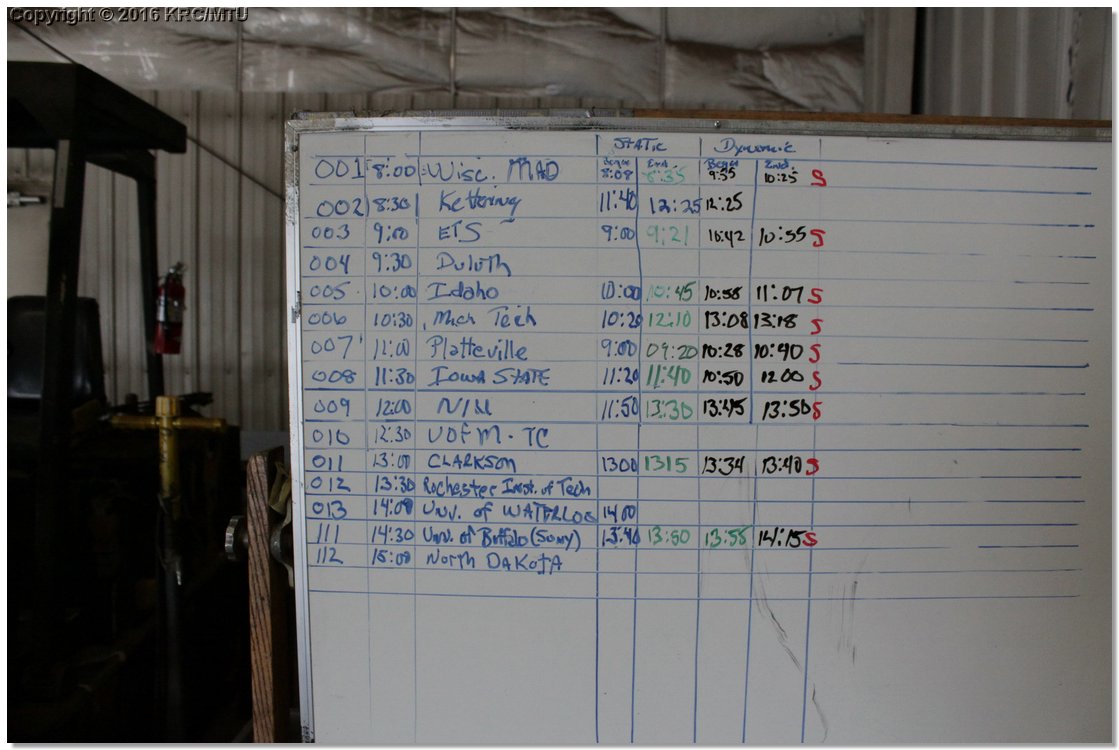 Copyright © 2016 KRC/MTU
STATIC Dynamic
Begin End Begin End
001 8:00 Wisc. MAD 8:08 8:35 9:55 10:25 S
002 8:30 Kettering 11:40 12:25 12:25
003 9:00 ETS 9:00 9:21 10:42 10:55 S
004 9:30 Duluth
005 10:00 Idaho 10:00 10:45 10:58 11:07 S
006 10:30 Mich Tech 10:20 12:10 13:08 13:18 S
007 11:00 Platteville 9:00 09:20 10:28 10:40 S
008 11:30 IOWA STATE 11:20 11:40 10:50 12 00 S
009 12:00 NIU 11:50 13:30 13:45 13:50 S
010 12:30 U OF M - TC
011 13:00 CLARKSON 1300 1315 13:34 13:40 S
012 13:30 Rochester Inst. of Tech
013 14:00 Unv. of WATERLOO 1400
111 14:30 Unv. of Buffalo (Suny) 13:40 13:50 13:55 14:15 S
112 15:00 North DAKOTA